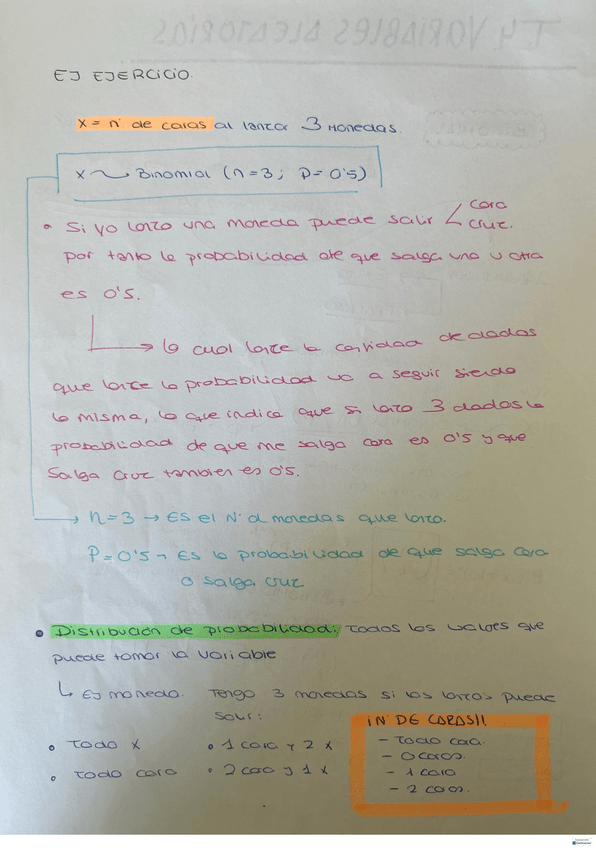 EJ EJERCICIO.
X = nº de caras al lanzar 3 monedas.
X ~ Binomial (n=3; P=0'5)
• Si yo lanzo una moneda puede salir < cara
cruz.
por tanto la probabilidad de que salga una u otra
es 0'5.
→ lo cual lance la cantidad de dados
que lance la probabilidad va a seguir siendo
la misma, lo que indica que si lanzo 3 dados la
probabilidad de que me salga cara es 0'5 y que
salga cruz tambien es 0'5.
→ n=3 → ES el Nº d monedas que lanzo.
P=0'5 → ES la probabilidad de que salga cara
o salga cruz
• Distribución de probabilidad: Todos los valores que
puede tomar la variable
↳ EJ moneda. Tengo 3 monedas si las lanzo puede
salir:
• Todo X • 1 cara y 2 X
• Todo cara • 2 cara y 1 X
¡Nº DE CARAS!!
- Todo cara.
- 0 caras.
- 1 cara
- 2 caras.